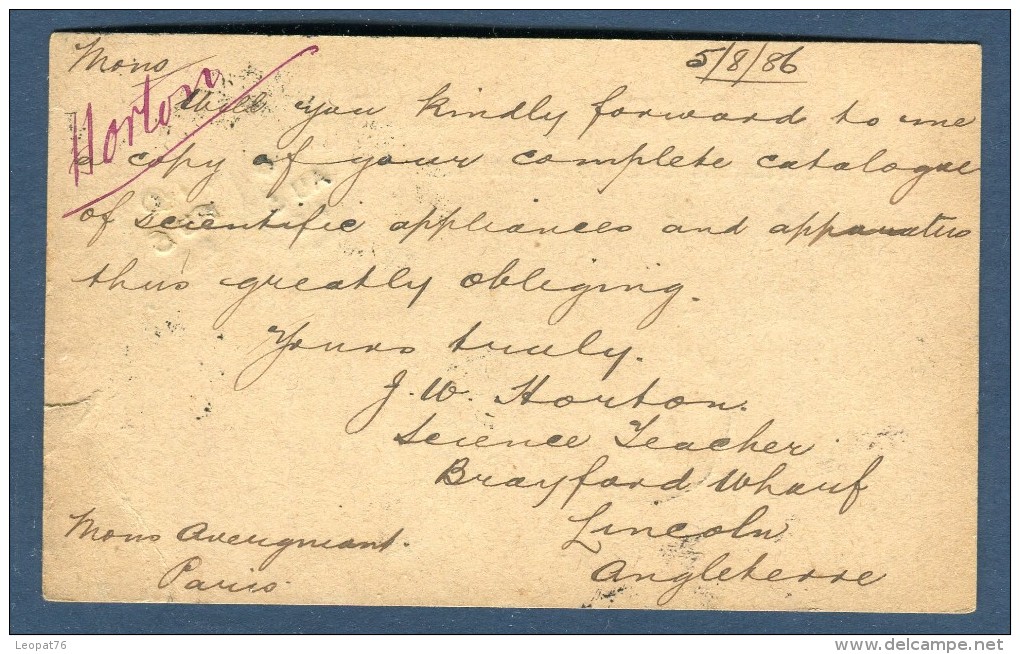 5/8/86
Mons
Horton
Will you kindly forward to me
a copy of your complete catalogue
of scientific appliances and apparatus
thus greatly obliging.
Yours truly.
J. W. Horton.
Science Teacher
Brayford Wharf
Lincoln
Angleterre
Mons
Paris
Leopat76
delcampe.net